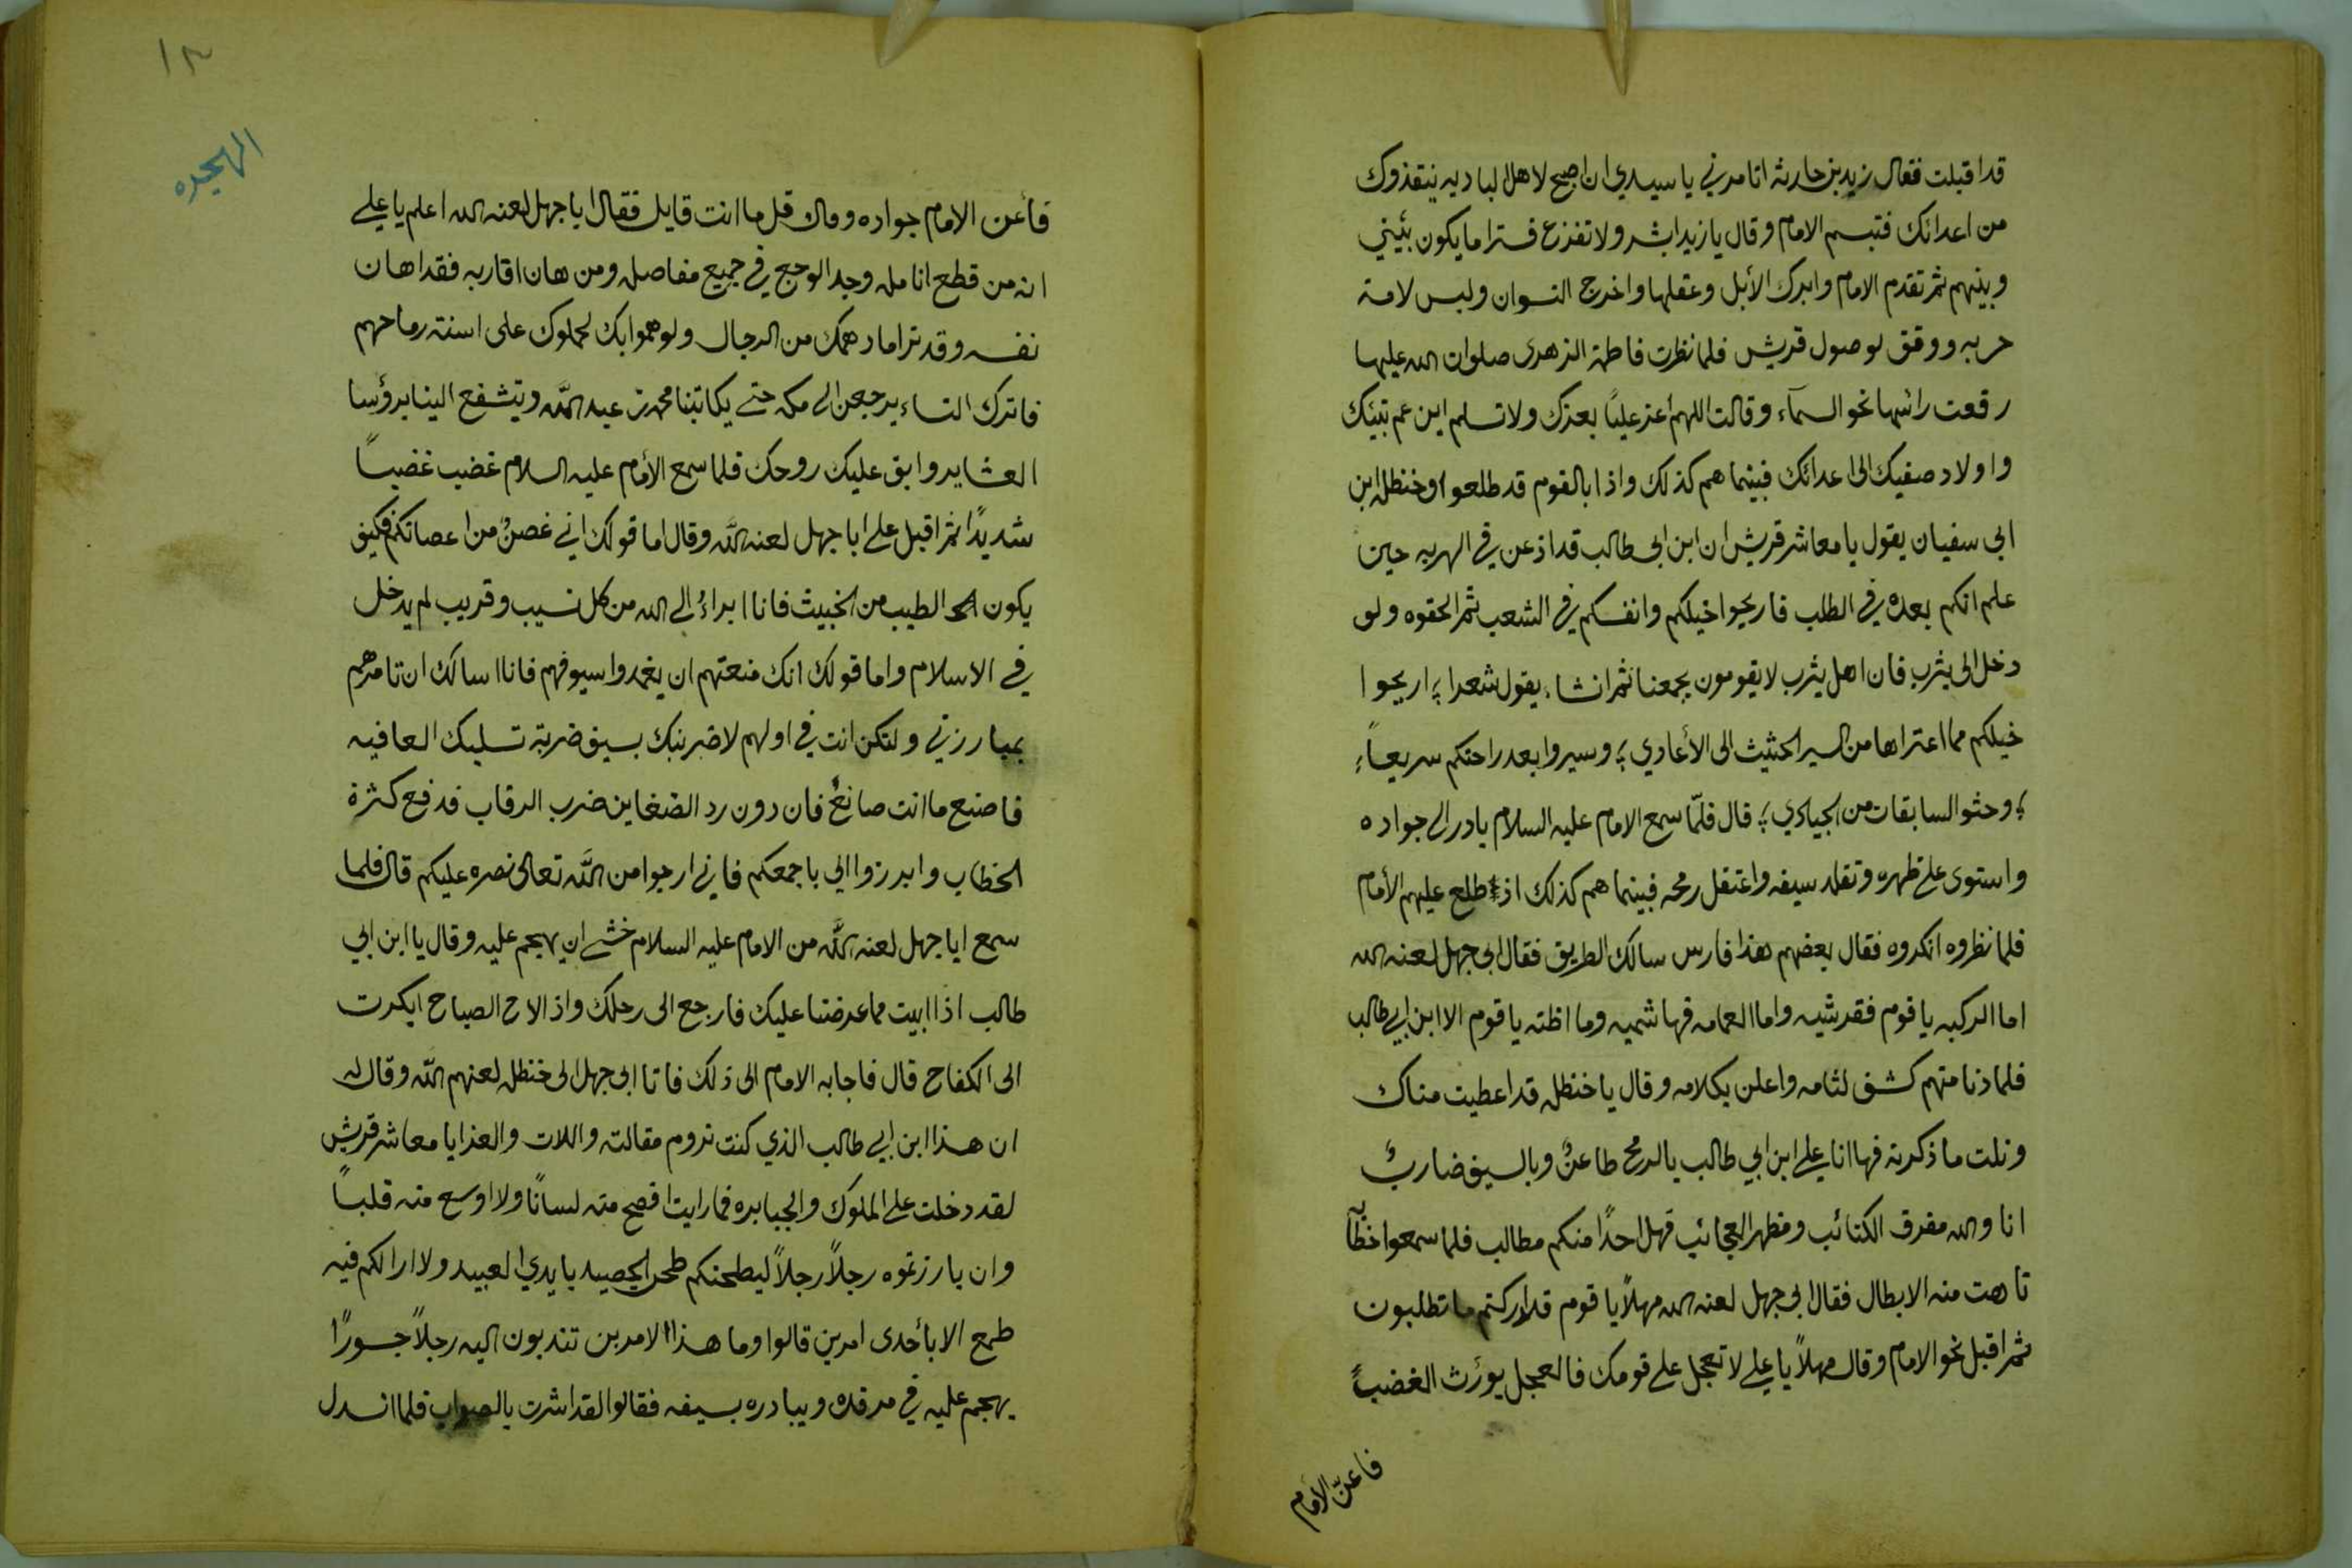 قد اقبلت فقال زيد بن حارثه اتامرني يا سيدي ان اصيح لاهل الباديه ينتقذوك
من اعدائك فتبسم الامام وقال يا زيد ابشر ولا تفزع فسترا ما يكون بيني
وبينهم ثم تقدم الامام وابرك الأبل وعقلها واخرج النسوان ولبس لامة
حربه ووقف لوصول قريش فلما نظرت فاطمة الزهرى صلوات الله عليها
رفعت رائسها نحو السمآء وقالت اللهم أعز علياً بعزك ولا تسلم ابن عم نبيك
واولاد صفيك الى اعدائك فبينما هم كذلك واذا بالقوم قد طلعوا وخنظله ابن
ابي سفيان يقول يا معاشر قريش ان ابن ابي طالب قد اذعن في الهربه حين
علم انكم بعده في الطلب فاريحوا خيلكم وانفسكم في الشعب ثم الحقوه ولو
دخل الى يثرب فان اهل يثرب لا يقومون بجمعنا ثم انشاء يقول شعرا ؛ اريحوا
خيلكم مما اعتراها من السير الحثيث الى الأعادي ؛ وسيروا بعد راحتكم سريعاً ؛
؛ وحثو السابقات من الجيادي ؛ قال فلمّا سمع الامام عليه السلام بادر الى جواده
واستوى على ظهره وتقلد سيفه واعتقل رمحه فبينما هم كذلك اذ طلع عليهم الأمام
فلما نظروه انكروه فقال بعضهم هذا فارس سالك الطريق فقال ابي جهل لعنه الله
اما الركبه يا قوم فقرشيه واما العمامه فهاشميه وما اظنه يا قوم الا ابن ابي طالب
فلما دنا منهم كشف لثامه واعلن بكلامه وقال يا خنظله قد اعطيت مناك
ونلت ما ذكرته فها انا علي ابن ابي طالب بالرمح طاعنٌ وبالسيف ضاربٌ
انا والله مفرق الكتائب ومظهر العجائب فهل احدًا منكم مطالب فلما سمعوا خطآبه
تاهت منه الابطال فقال ابي جهل لعنه الله مهلاً يا قوم قد ادركتم ما تطلبون
ثم اقبل نحو الامام وقال مهلاً يا علي لا تعجل على قومك فالعجل يورث الغضبً
فاعنّ الأمام
١٣
الهجره
فأعن الامام جواده وقال قل ما انت قايل فقال ابا جهل لعنه الله اعلم يا علي
انه من قطع انامله وجد الوجع في جميع مفاصله ومن هان اقاربه فقد اهان
نفسه وقد ترا ما دهمك من الرجال ولو هموا بك لحملوك على اسنة رماحهم
فاترك النساء يرجعن الى مكه حتى يكاتبنا محمد بن عبد الله ويتشفع الينا برؤسا
العشاير وابق عليك روحك فلما سمع الأمام عليه السلام غضب غضباً
شديدًا ثم اقبل على ابا جهل لعنه الله وقال اما قولك اني غصنٌ من اعصانكم فكيف
يكون الطيب من الخبيث فانا ابراءُ الى الله من كل نسيب وقريب لم يدخل
في الاسلام واما قولك انك منعتهم ان يغمدوا سيوفهم فانا اسالك ان تامرهم
بمبارزتي ولتكن انت في اولهم لاضربنك بسيفي ضربة تسلبك العافيه
فاصنع ما انت صانعٌ فان دون رد الضغاين ضرب الرقاب فدفع كثرة
الخطاب وابرزوا الي باجمعكم فاني ارجوا من الله تعالى نصره عليكم قال فلما
سمع ابا جهل لعنه الله من الامام عليه السلام خشي ان يهجم عليه وقال يا ابن ابي
طالب اذا ابيت مما عرضنا عليك فارجع الى رحلك واذ الاح الصباح ابكرت
الى الكفاح قال فاجابه الامام الى ذلك فاتا ابي جهل الى خنظله لعنهم الله وقال له
ان هذا ابن ابي طالب الذي كنت تروم مقالته واللات والعزا يا معاشر قريش
لقد دخلت على الملوك والجبابره فما رايت افصح منه لسانًا ولا اوسع منه قلباً
وان بارزتموه رجلاً رجلاً ليطحنكم طحن الحصيد بايدي العبيد ولا ارا لكم فيه
طمع الا بأحدى امرين قالوا وما هذا الامرين تندبون اليه رجلاً جسورًا
يهجم عليه في مرقده ويبادره بسيفه فقالوا لقد اشرت بالصواب فلما انسدل